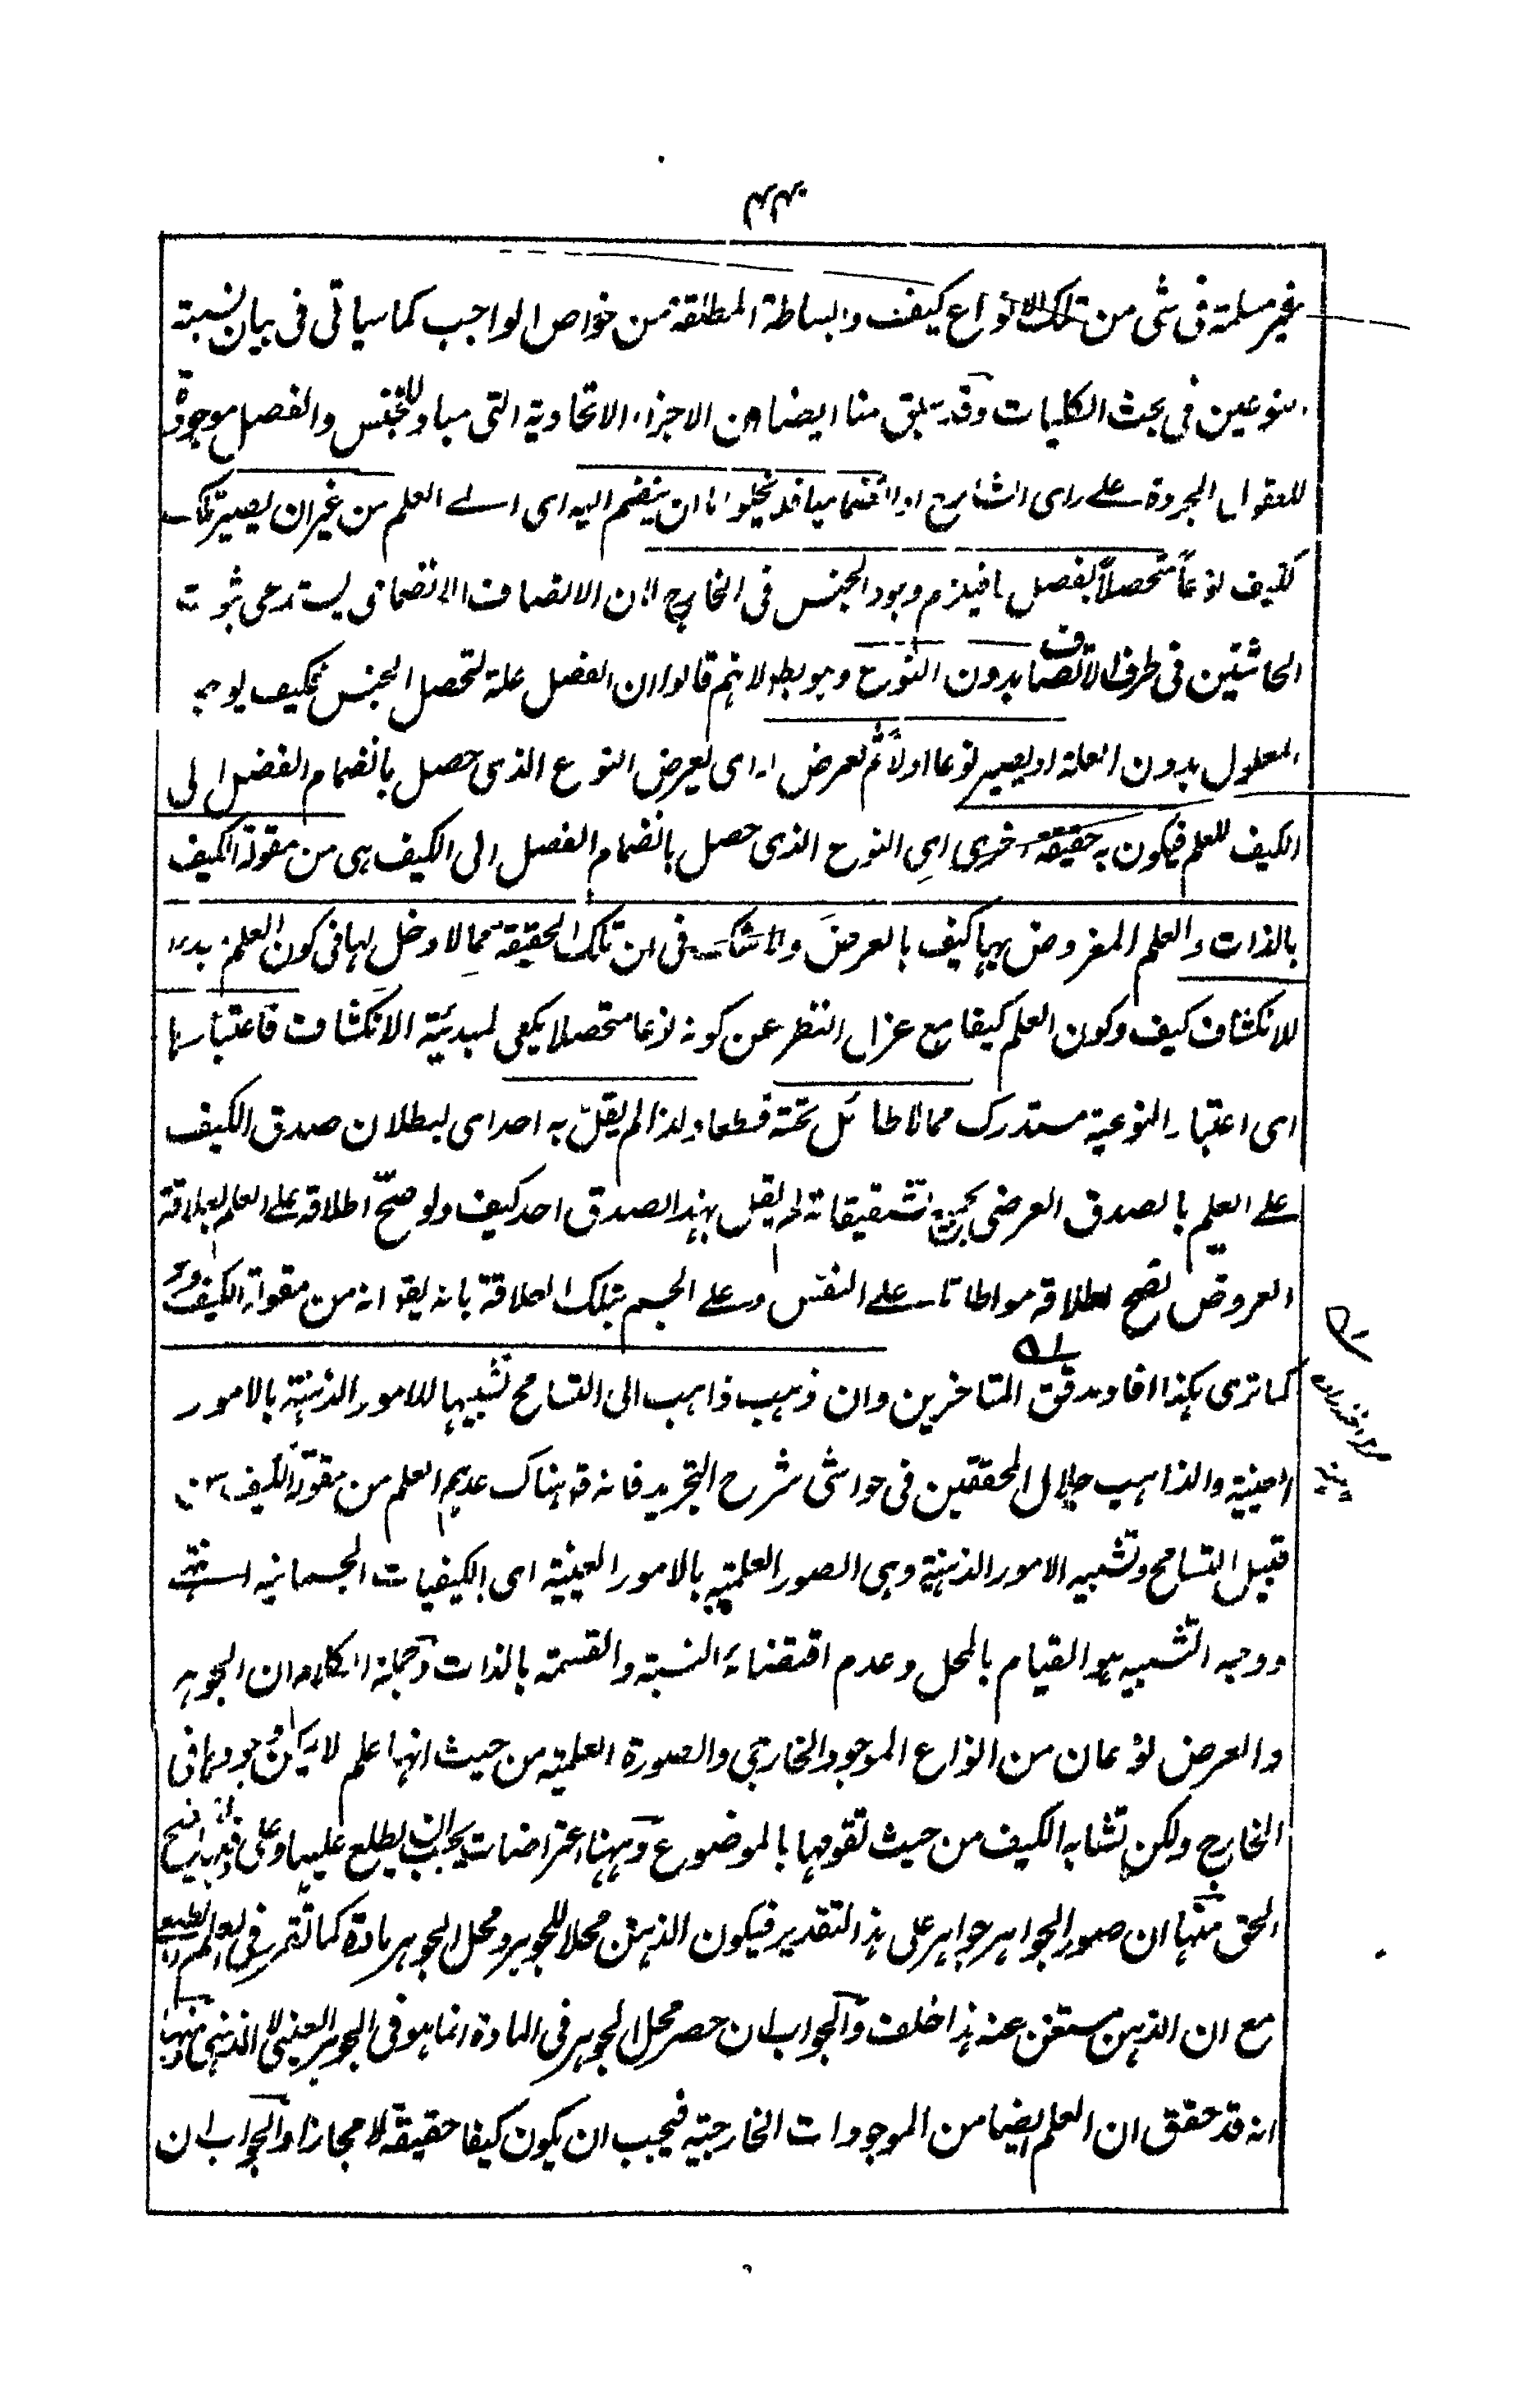 غير مسلمة فى شى من تلك الانواع كيف والبساطة المطلقة من خواص الواجب كما سياتى فى بيان نسبة
النوعين فى بحث الكليات وقد سبق منا ايضا ان الاجزاء الاتحادية التى مباد للجنس والفصل موجودة
للعقول المجردة على راى الشارح او انضماميا فلا يخلو اما ان ينضم اليه اى الى العلم من غير ان يصير تلك
كيف نوعاً متحصلاً بفصل ما فيلزم وجود الجنس فى الخارج لان الاتصاف الانضمامى يستدعى ثبوت
الحاشيتين فى ظرف الاتصاف بدون النوع وهو بط لانهم قالوا ان الفصل علة لتحصل الجنس فكيف يوجد
المعلول بدون العلة او يصير نوعا اولاً ثم تعرض اى يعرض النوع الذى حصل بانضمام الفصل الى
الكيف للعلم فيكون به حقيقة اخرى اى النوع الذى حصل بانضمام الفصل الى الكيف هى من مقولة الكيف
بالذات والعلم المعروض بها كيف بالعرض ولا شك فى ان تلك الحقيقة مما لا دخل لها فى كون العلم مبدءا
للانكشاف كيف وكون العلم كيفا مع عزل النظر عن كونه نوعا متحصلا يكفى لمبدئية الانكشاف فاعتبارها
اى اعتبار النوعية مستدرك مما لا طائل تحته قطعا ولذا لم يقل به احد اى لبطلان صدق الكيف
على العلم بالصدق العرضى بجميع تشقيقاته لم يقل بهذا الصدق احد كيف ولو صح اطلاقه على العلم لعلاقة
العروض لصح اطلاقه مواطاة على النفس وعلى الجسم بتلك العلاقة بانه يقو انه من مقولة الكيف وهو
كما ترى هكذا افاد مدقق المتاخرين وان ذهب ذاهب الى التسامح تشبيها للامور الذهنية بالامور
العينية والذاهب جلال المحققين فى حواشى شرح التجريد فانه قد هناك عدهم العلم من مقولة الكيف من
قبيل التسامح وتشبيه الامور الذهنية وهى الصور العلمية بالامور العينية اى الكيفيات الجسمانية انتهى
ووجه التشبيه هو القيام بالمحل وعدم اقتضاء النسبة والقسمة بالذات وجملة الكلام ان الجوهر
والعرض نوعان من انواع الموجود الخارجى والصورة العلمية من حيث انها علم لا يكن موجودا فى
الخارج ولكن تشابه الكيف من حيث تقومها بالموضوع وههنا اعتراضات يجب ان يطلع عليها وعلى دفعها ليتضح
الحق منها ان صور الجواهر جواهر على هذا التقدير فيكون الذهن محلا للجوهر ومحل الجوهر مادة كما تقرر فى العلم الطبعى
مع ان الذهن مستغن عنه هذا خلف والجواب ان حصر محل الجوهر فى المادة انما هو فى الجوهر العينى لا الذهنى ومنها
انه قد حقق ان العلم ايضا من الموجودات الخارجية فيجب ان يكون كيفا حقيقة لا مجازا والجواب ان